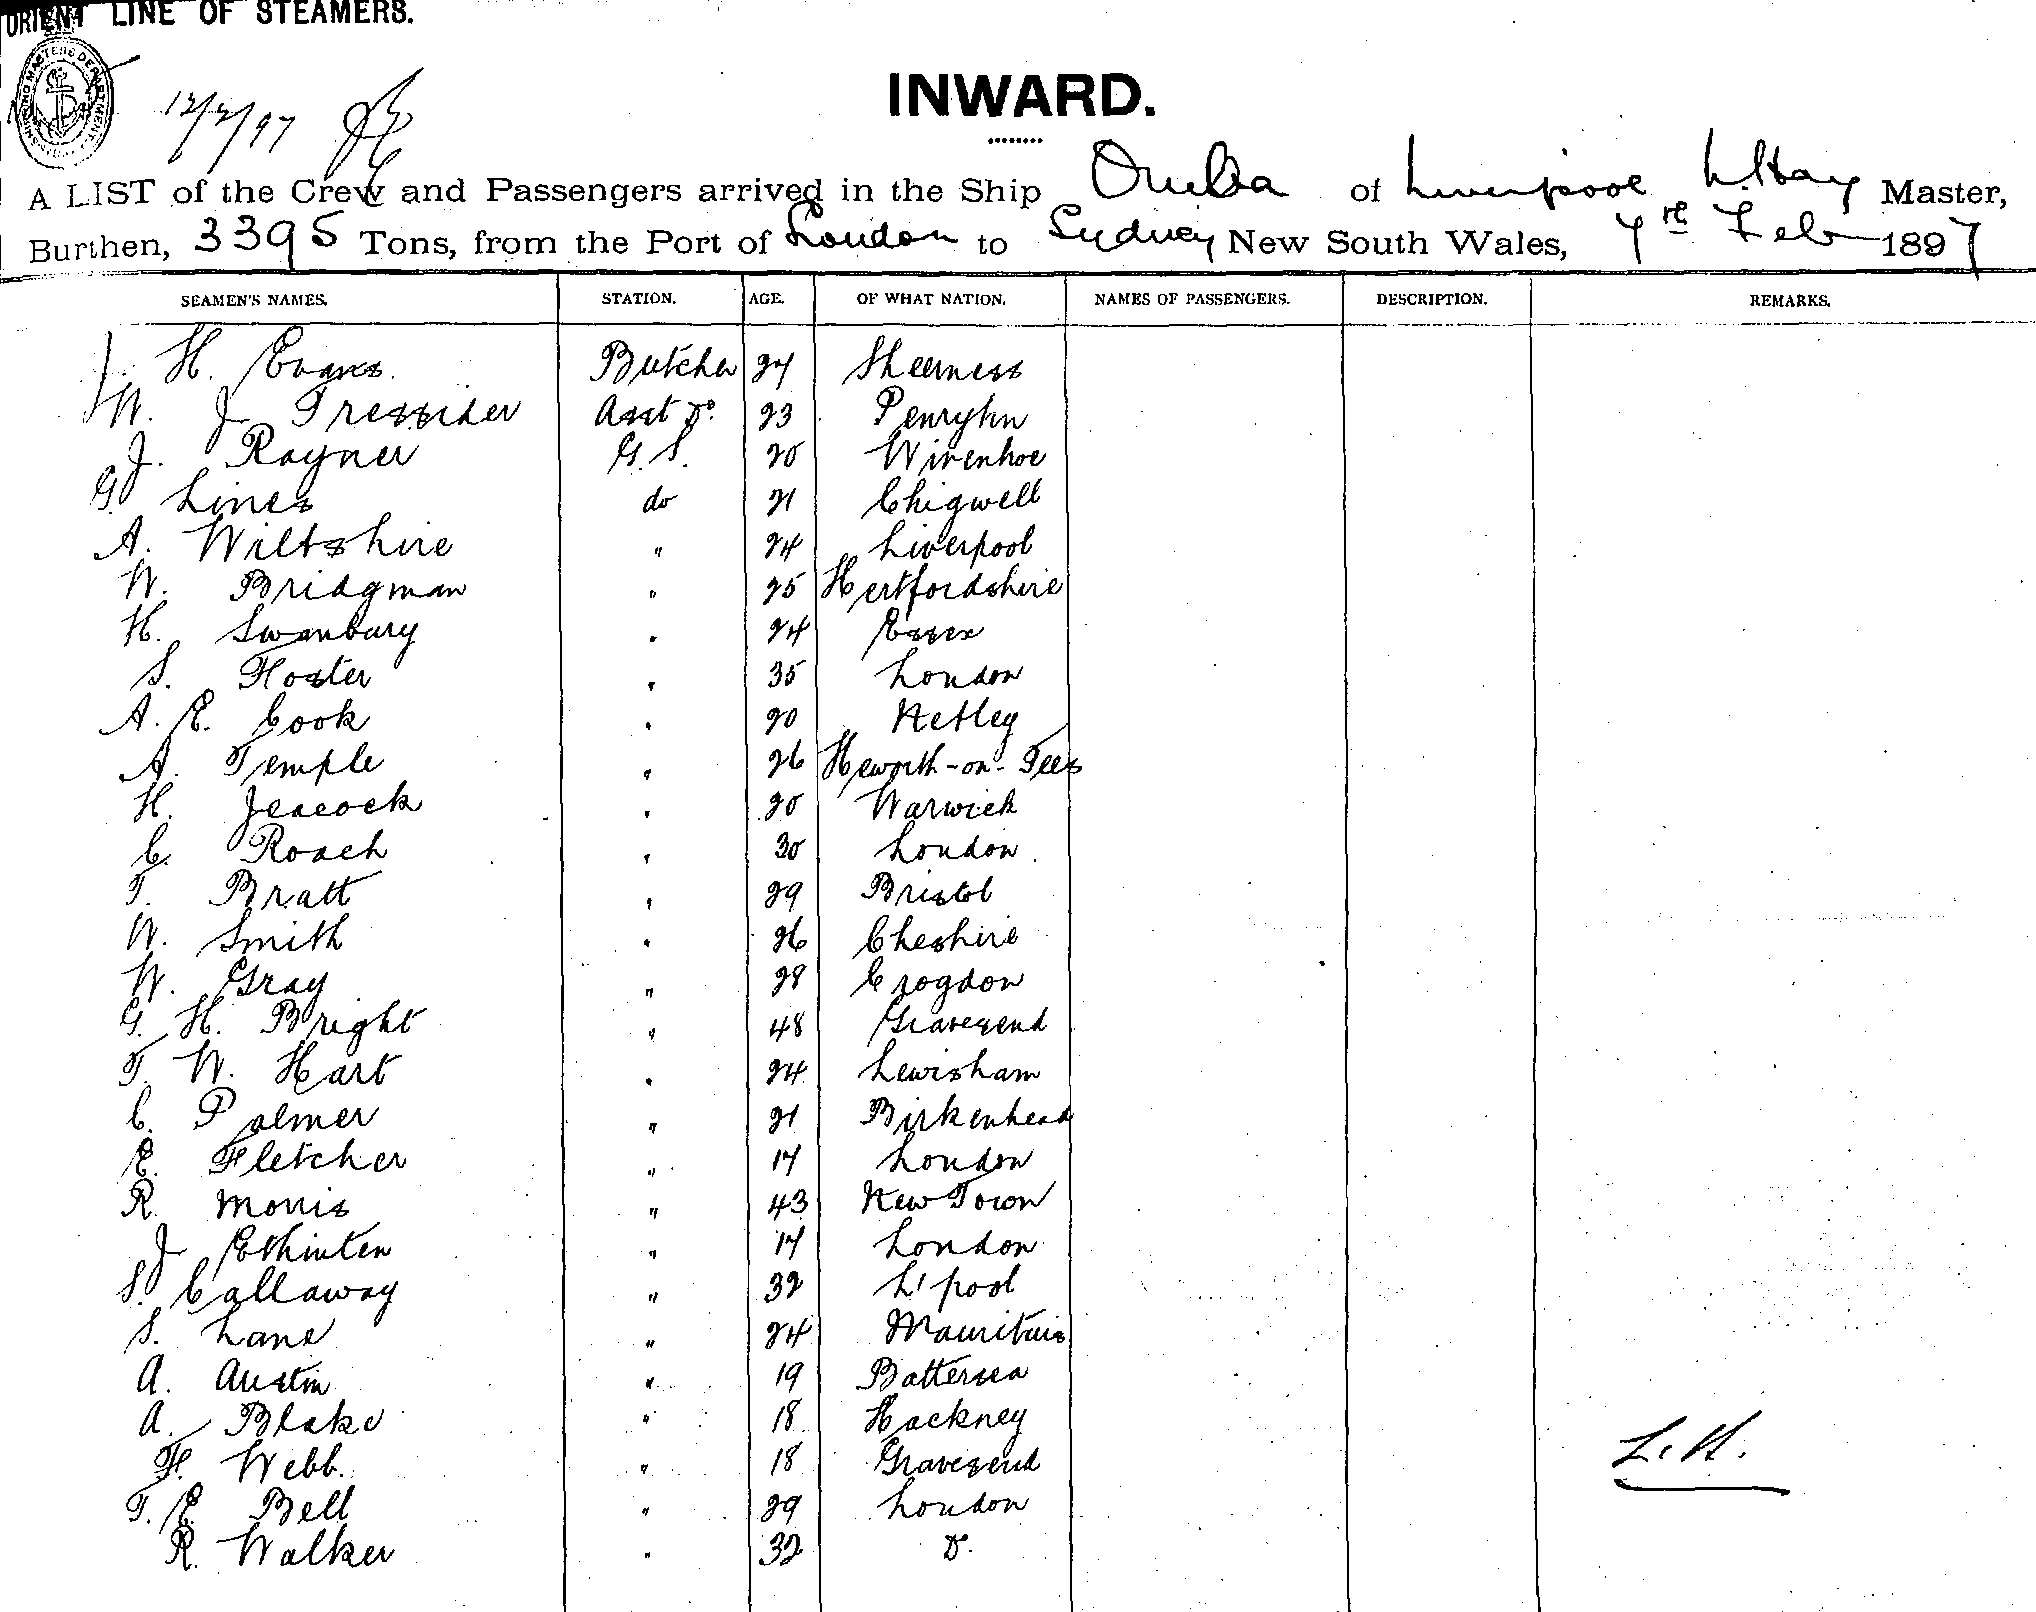 ORIENT LINE OF STEAMERS.
12/2/97
INWARD.
A LIST of the Crew and Passengers arrived in the Ship Oruba of Liverpool L. Hay Master,
Burthen, 3395 Tons, from the Port of London to Sydney New South Wales, 7th Feb 1897
SEAMEN'S NAMES. STATION. AGE. OF WHAT NATION. NAMES OF PASSENGERS. DESCRIPTION. REMARKS.
H. Evans Butcher 27 Sheerness
W. J Tressider Asst Do. 23 Penryhn
J. Rayner G.S. 20 Wivenhoe
G. Lines do 21 Chigwell
A. Wiltshire " 24 Liverpool
W. Bridgman " 25 Hertfordshire
H. Swanbury " 24 Essex
S. Floster " 35 London
A. E. Cook " 20 Netley
A. Temple " 26 Heworth-on-Tees
H. Jeacock " 20 Warwick
C. Roach " 30 London
T. Bratt " 29 Bristol
W. Smith " 26 Cheshire
W. Gray " 28 Croydon
G. H. Bright " 48 Gravesend
T. W. Hart " 24 Lewisham
C. Palmer " 21 Birkenhead
E. Fletcher " 17 London
R. Morris " 43 New Town
J " 17 London
S. Callaway " 32 L'pool
S. Lane " 24 Mauritius
A. Austin " 19 Battersea
A. Blake " 18 Hackney
F. Webb. " 18 Gravesend
L.H.
T. E. Bell " 29 London
R. Walker " 32 Do.